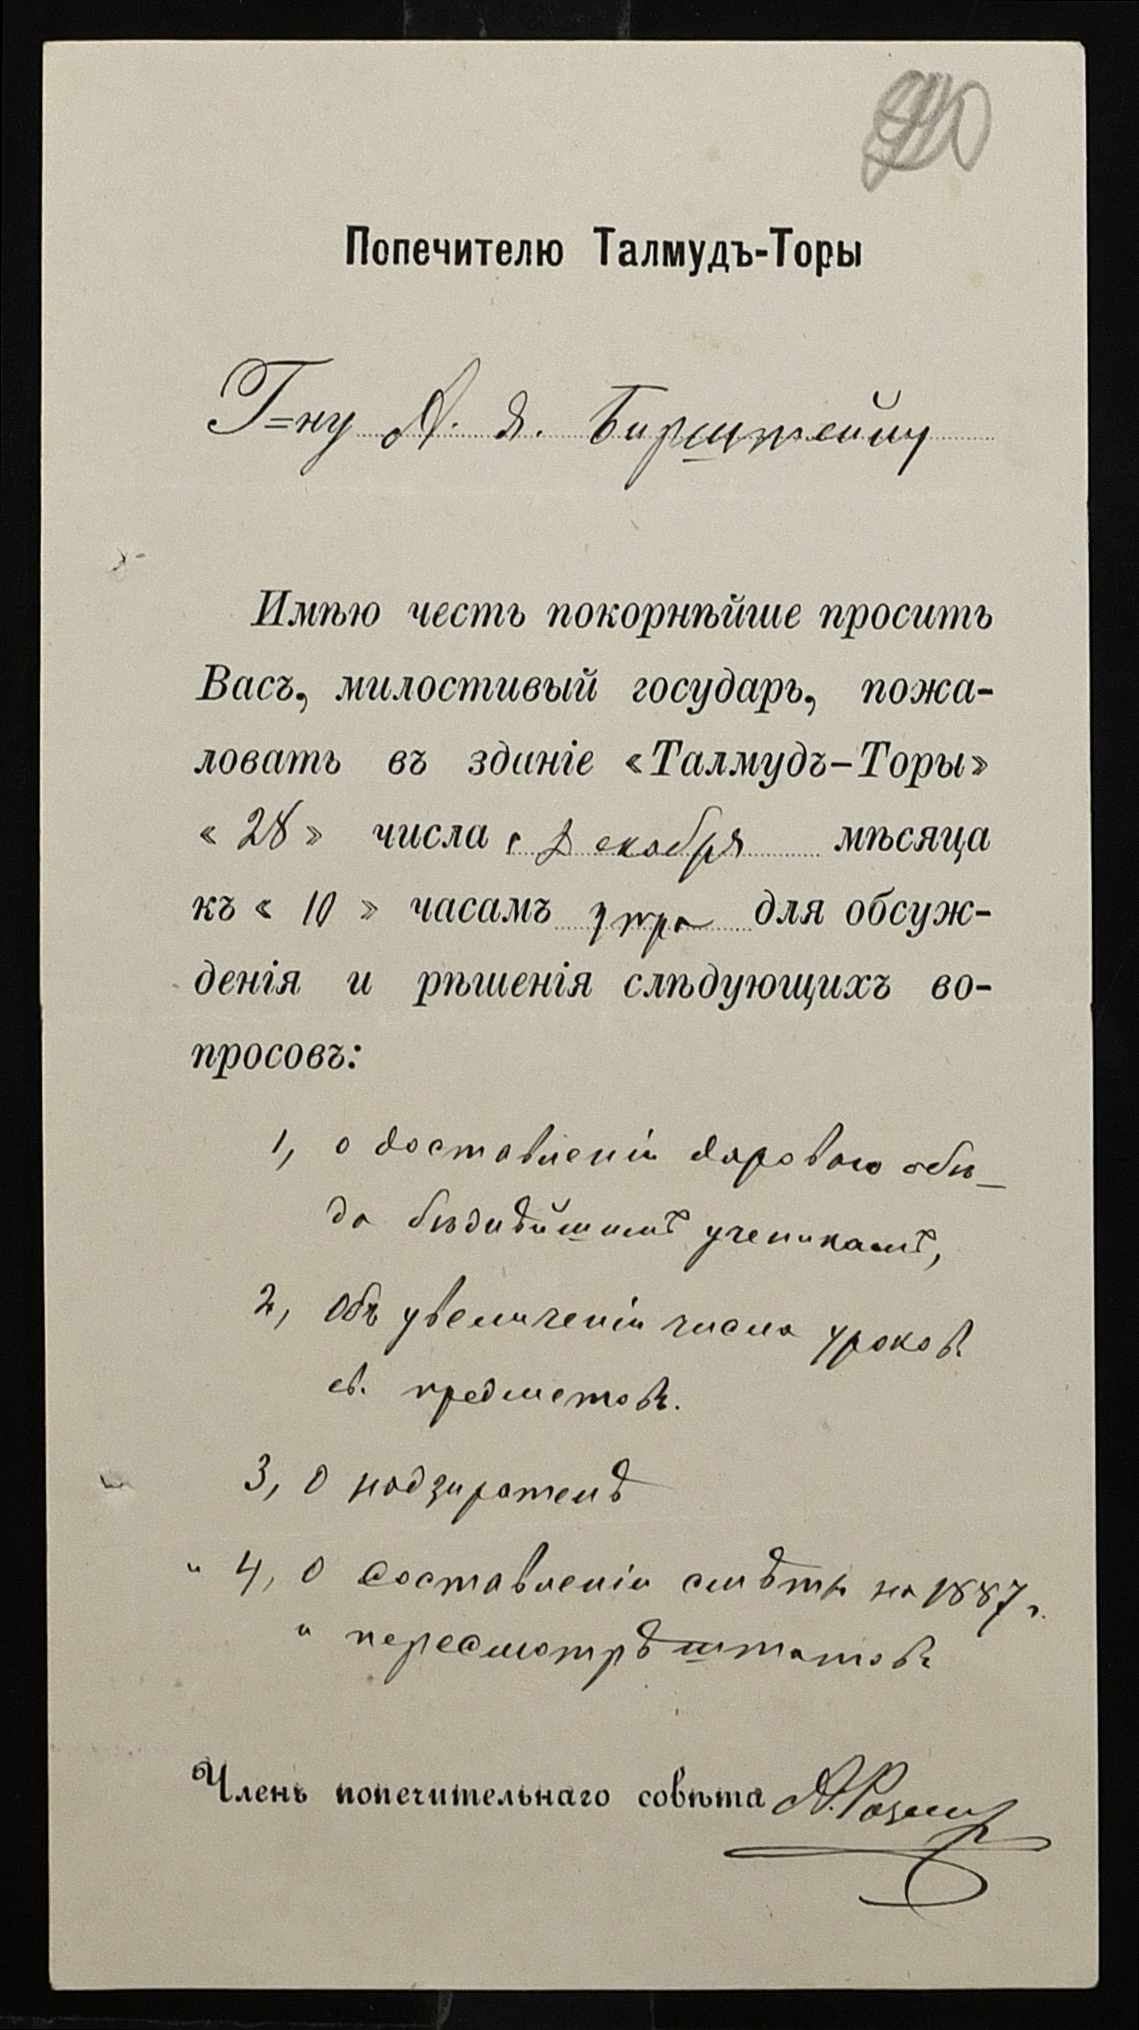 Попечителю Талмудъ-Торы
Г=ну А. Я. Бирштейну
Имѣю честь покорнѣйше просить
Васъ, милостивый государь, пожа-
ловать въ зданіе «Талмудъ-Торы»
«28» числа с. Декабря мѣсяца
къ «10» часамъ утра для обсуж-
денія и рѣшенія слѣдующихъ во-
просовъ:
1, о доставленіи дароваго обѣ-
да бѣднѣйшимъ ученикамъ,
2, Объ увеличеніи числа уроковъ
ев. предметовъ.
3, О надзирателѣ
и 4, О составленіи смѣты на 1887 г.
и пересмотрѣ штатовъ
Членъ попечительнаго совѣта А.